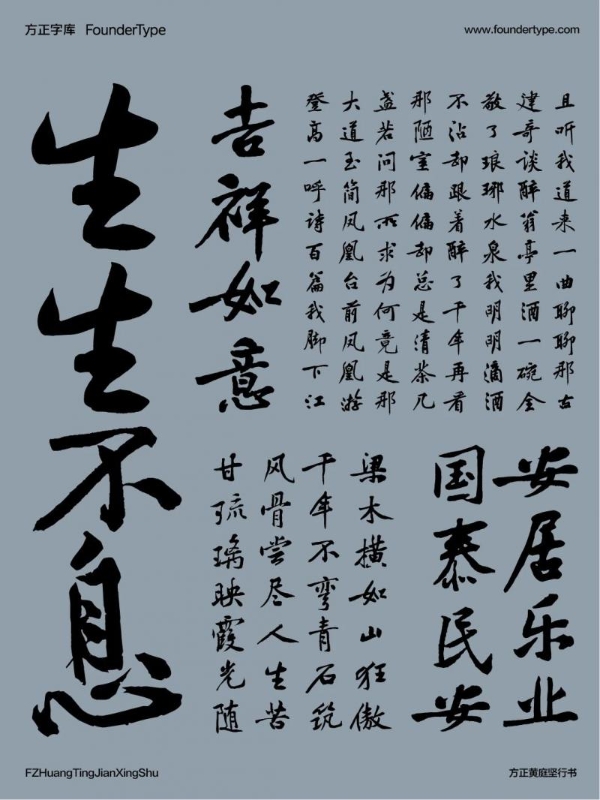 方正字库 FounderType
www.foundertype.com
且听我道来一曲聊聊那古
建哥谈醉翁亭里酒一碗全
敬了琅琊水泉我明明滴酒
不沾却跟着醉了千年再看
那陋室偏偏却总是清茶几
盏若问那所求为何竟是那
大道玉简凤凰台前凤凰游
登高一呼诗百篇我脚下江
吉祥如意
生生不息
安居乐业
国泰民安
梁木横如山狂傲
千年不弯青石筑
风骨尝尽人生苦
甘琉璃映霞光随
FZHuangTingJianXingShu
方正黄庭坚行书